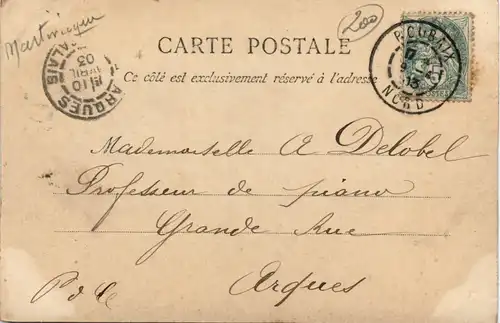 Martinique
200
CARTE POSTALE
Ce côté est exclusivement réservé à l'adresse
ROUBAIX
NORD
ARQUES
CALAIS
10
AVRIL
03
Mademoiselle A Delobel
Professeur de piano
Grande Rue
Arques
P d C